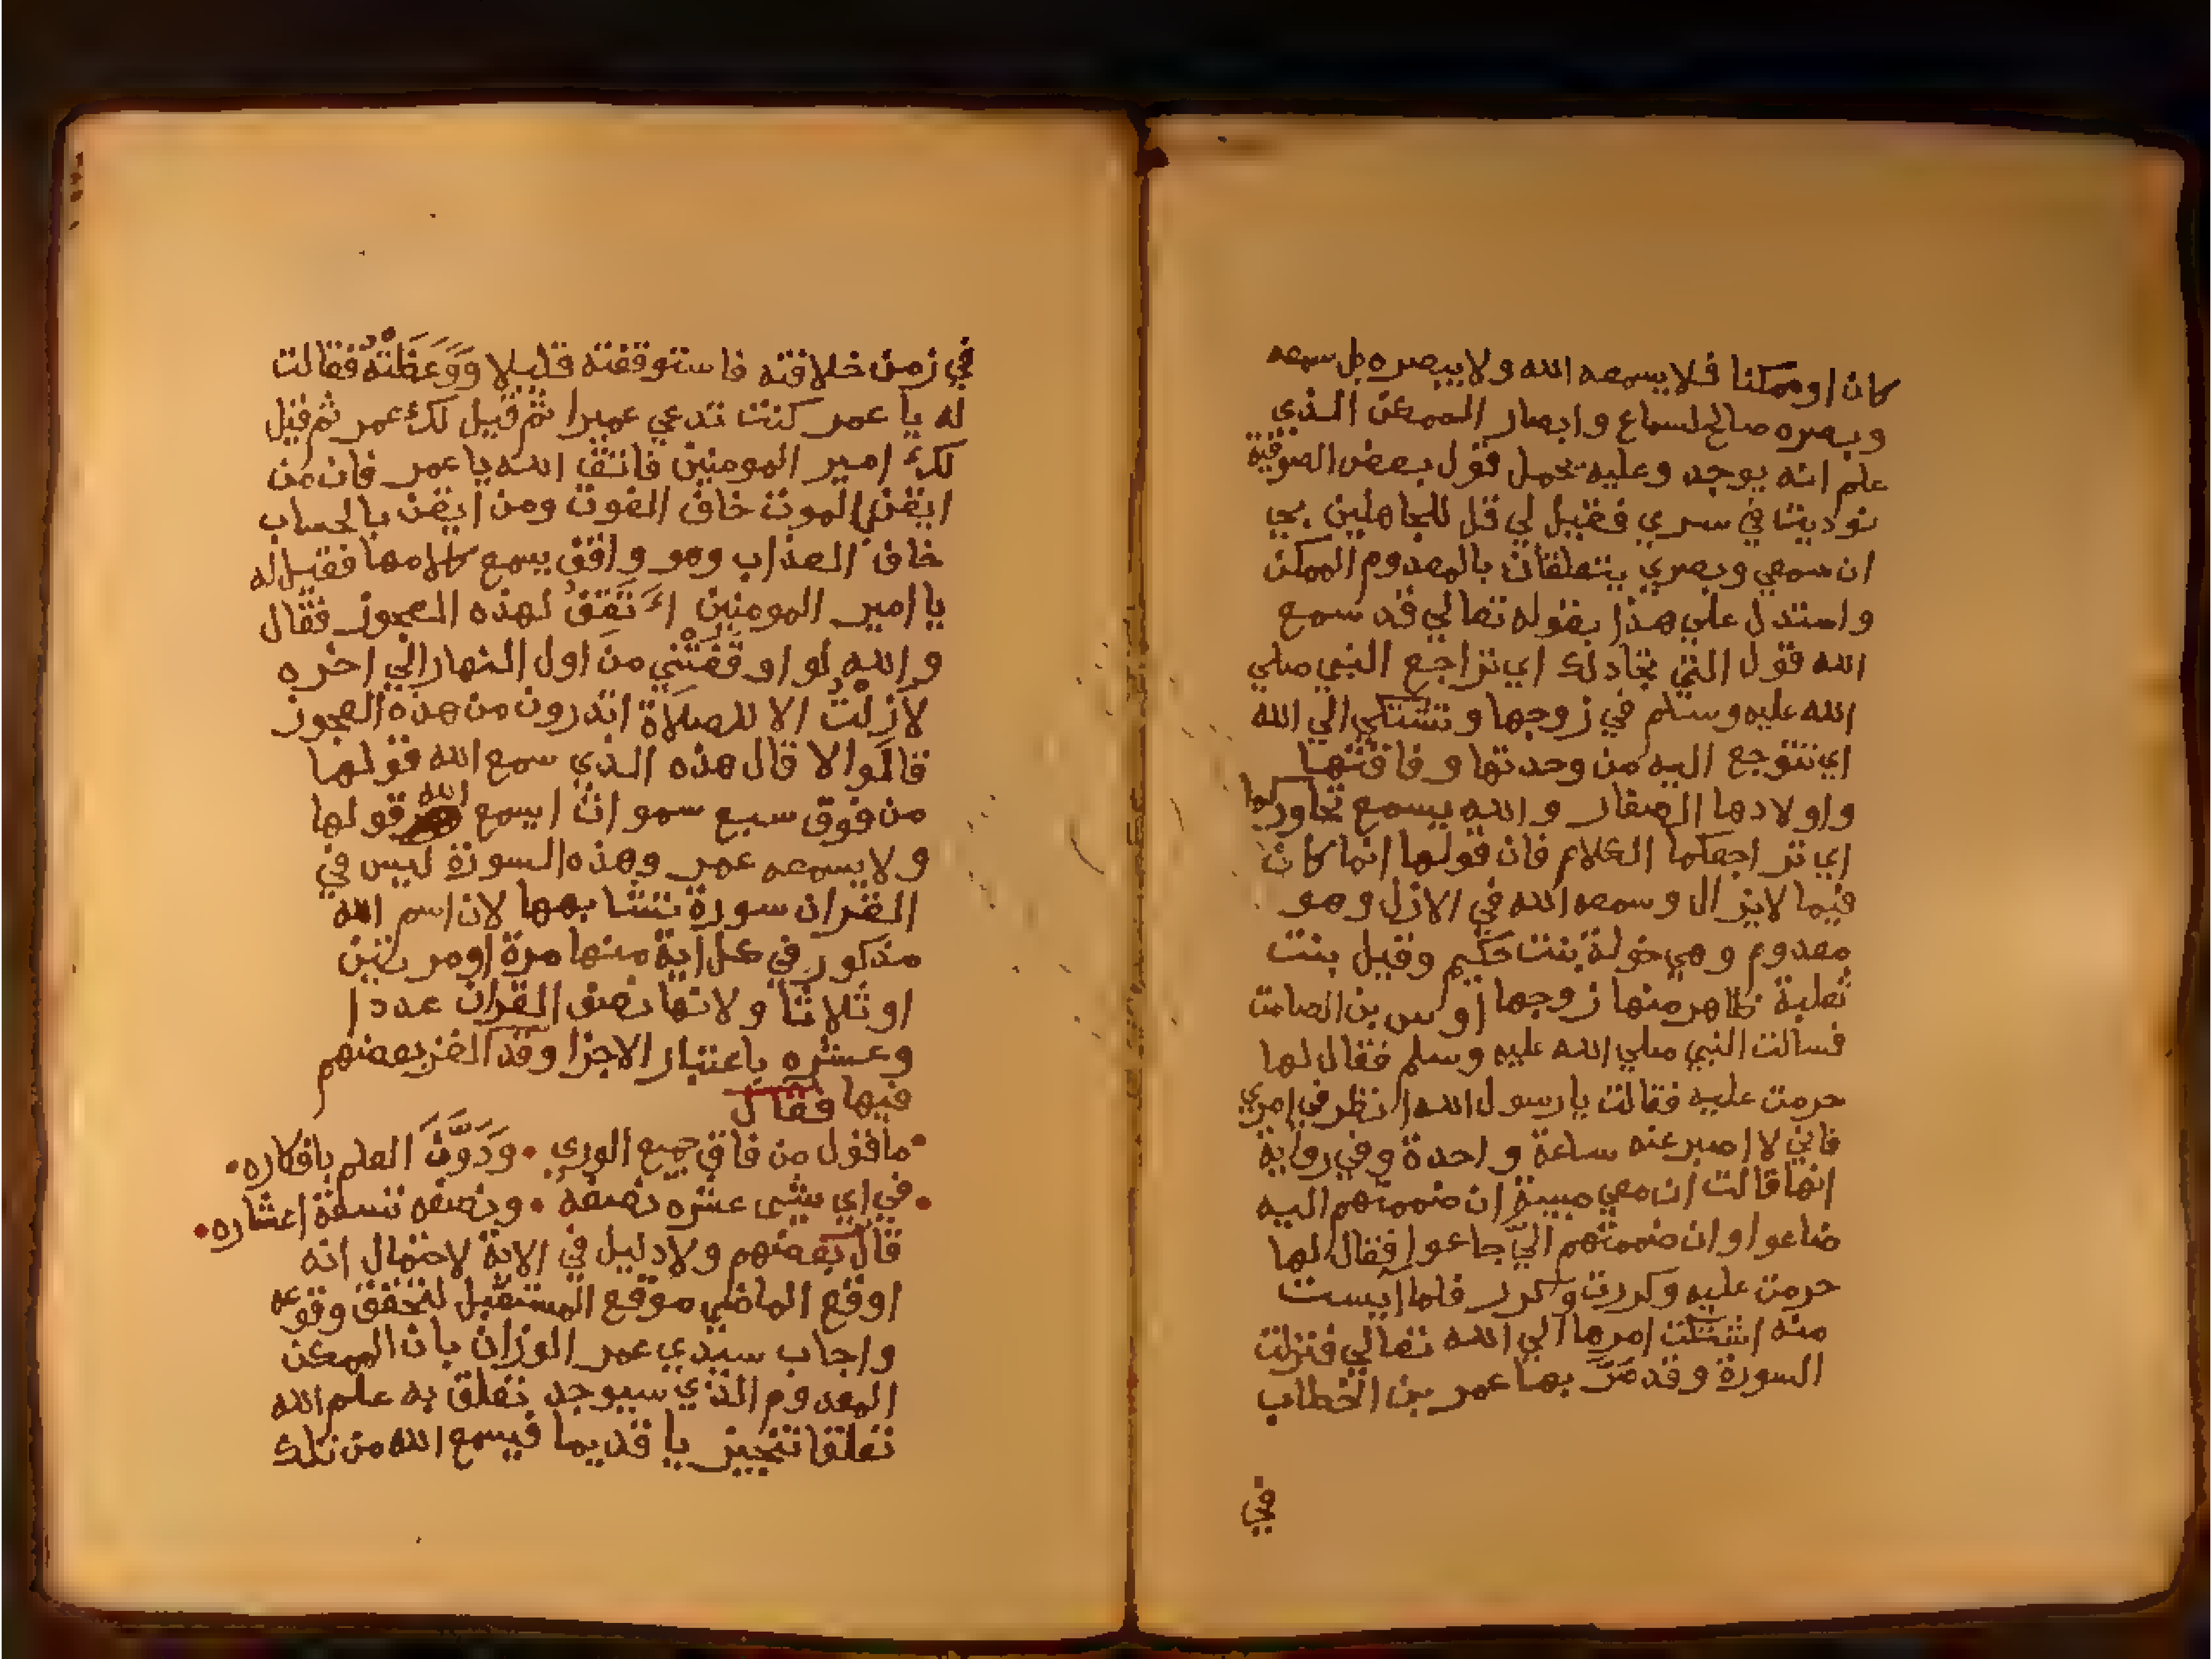 كان او ممكنا فلا يسمعه الله ولا يبصره بل سمعه
وبصره صالح لسماع وابصار الممكن الذي
علم انه يوجد وعليه يحمل قول بعض الصوفية
نوديت في سري فقيل لي قل للجاهلين بحا
ان سمعي وبصري يتعلقان بالمعدوم الممكن
واستدل علي هذا بقوله تعالي قد سمع
الله قول التي تجادلك اي تراجع النبي صلي
الله عليه وسلم في زوجها وتشتكي الي الله
اي تتوجع اليه من وحدتها وفاقتها
واولادها الصغار والله يسمع تحاوركما
اي تراجعكما الكلام فان قولها انما كان
فيما لا يزال وسمعه الله في الازل وهو
معدوم وهي خولة بنت حكيم وقيل بنت
ثعلبة ظاهر منها زوجها أوس بن الصامت
فسالت النبي صلي الله عليه وسلم فقال لها
حرمت عليه فقالت يا رسول الله انظر في امري
فاني لا اصبر عنه ساعة واحدة وفي رواية
انها قالت ان معي صبية ان ضممتهم اليه
ضاعوا وان ضممتهم اليّ جاعوا فقال لها
حرمت عليه وكررت وكرر فلما ايست
منه اشتكت امرها الي الله تعالي فنزلت
السورة وقد مَرَّ بها عمر بن الخطاب
في
في زمن خلافته فاستوقفته قليلا وَوَعَظَتْهُ فقالت
له يا عمر كنت تدعي عميرا ثم قيل لك عمر ثم قيل
لك امير المومنين فاتق الله يا عمر فان من
ايقن الموت خاف الفوت ومن ايقن بالحساب
خاف العذاب وهو واقف يسمع كلامها فقيل له
يا امير المومنين اَتَقِفُ لهذه العجوز فقال
والله لو اوقَفَتْني من اول النهار الي اخره
لازلْتُ الا للصلاة اتدرون من هذه العجوز
قالوا لا قال هذه الذي سمع الله قولها
من فوق سبع سموات ايسمع الله قولها
ولا يسمعه عمر وهذه السورة ليس في
القران سورة تشابهها لان اسم الله
مذكور في كل اية منها مرة او مرتين
او ثلاثا ولانها نصف القران عددا
وعشره باعتبار الاجزا وقد الغز بعضهم
فيها فقال
ما قول من فاق جميع الوري • وَدَوَّنَ العلم بافكاره •
في اي شي عشره نصفه • ونصفه تسعة اعشاره •
قال بعضهم ولا دليل في الاية لاحتمال انه
اوقع الماضي موقع المستقبل لتحقق وقوعه
واجاب سيدي عمر الوزان بان الممكن
المعدوم الذي سيوجد تعلق به علم الله
تعلقا تنجيزيا قديما فيسمع الله من تلك